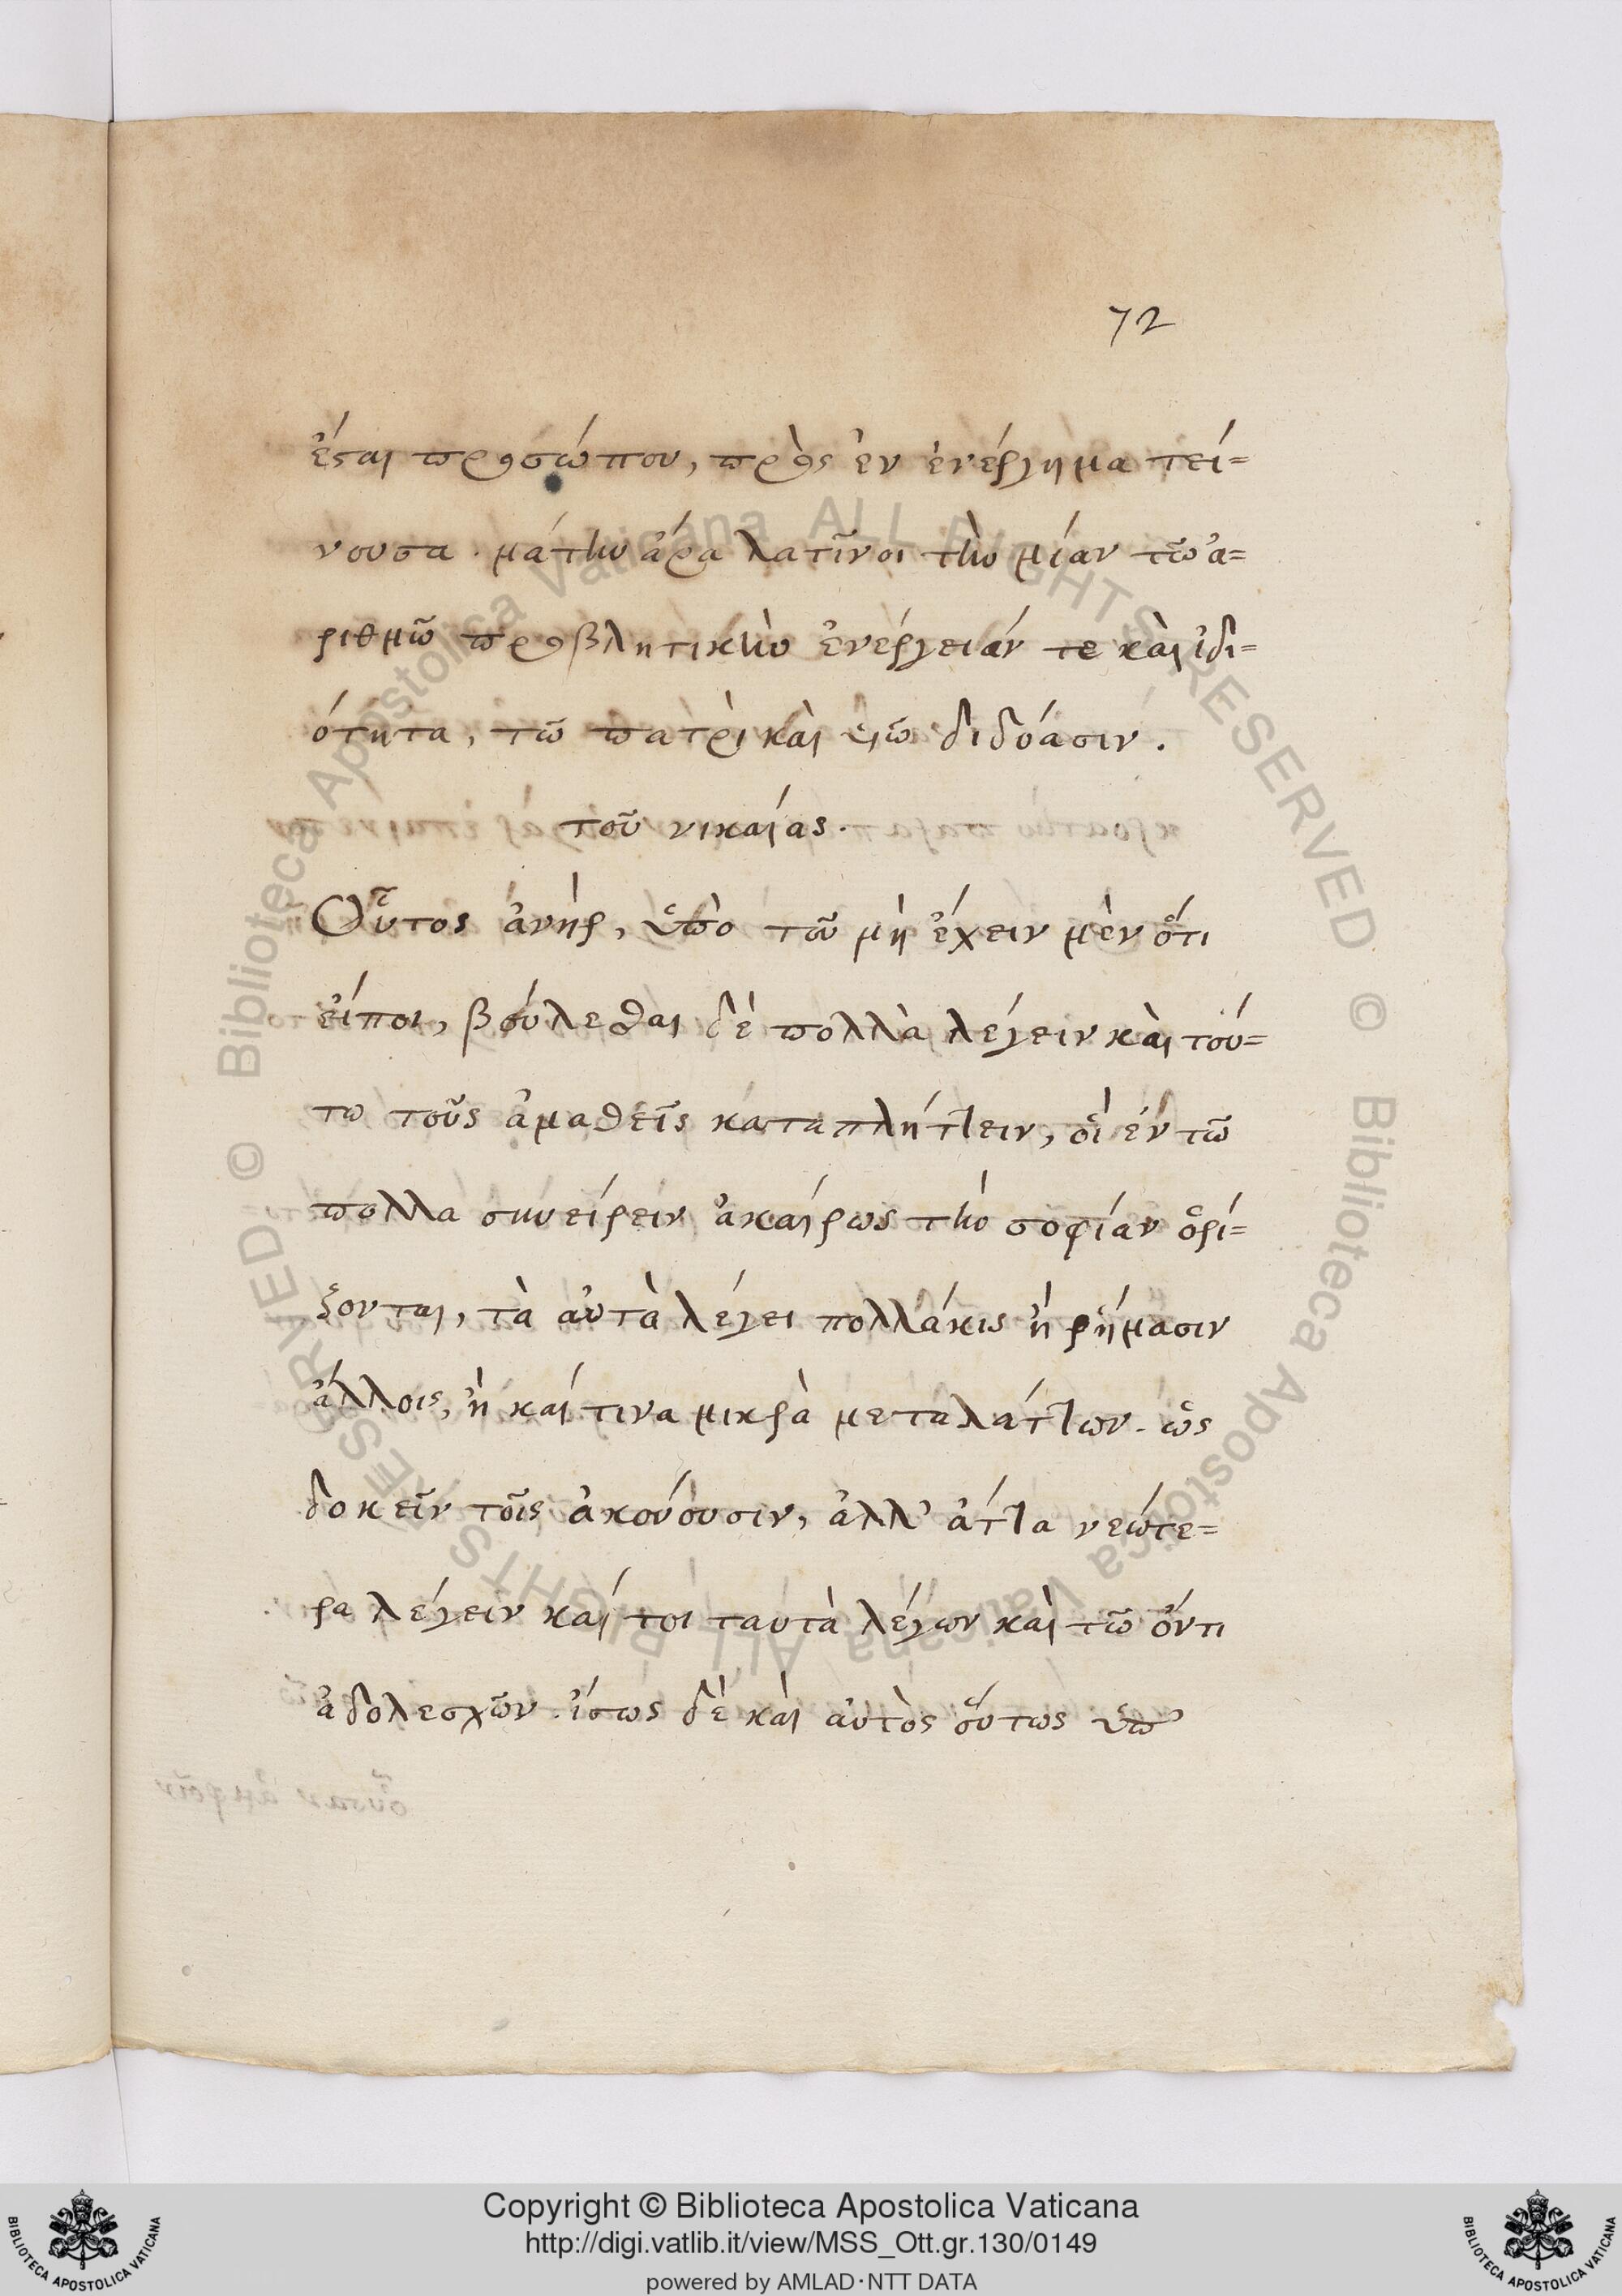 72
ἔσται προσώπου, πρὸς ἐν ἐνέργημα τεί=
νουσα. μάτην ἄρα λατῖνοι τὴν μίαν τῶ ἀ=
ριθμῶ προβλητικὴν ἐνέργειάν τε καὶ ἰδι=
ότητα, τῶ πατρὶ καὶ ὑιῶ διδόασιν.
τοῦ νικαίας.
Οὗτος ἀνὴρ, ὑπὸ τοῦ μὴ ἔχειν μὲν ὅτι
εἴποι, βούλεσθαι δὲ πολλὰ λέγειν καὶ τού=
τω τοῦς ἀμαθεῖς καταπλήττειν, οἳ ἐν τῶ
πολλα συνείρειν ἀκαίρως τὴν σοφίαν ὁρί=
ζονται, τὰ αὐτὰ λέγει πολλάκις ἢ ῥήμασιν
ἄλλοις, ἢ καί τινα μικρὰ μεταλάττων. ὡς
δοκεῖν τοῖς ἀκούουσιν, ἀλλ' ἄττα νεώτε=
ρα λέγειν καί τοι ταυτὰ λέγων καὶ τῶ ὄντι
ἀδολεσχῶν. ἴσως δὲ καὶ αὐτὸς οὕτως ὑπ'
Copyright © Biblioteca Apostolica Vaticana
http://digi.vatlib.it/view/MSS_Ott.gr.130/0149
powered by AMLAD·NTT DATA
BIBLIOTECA APOSTOLICA VATICANA
BIBLIOTECA APOSTOLICA VATICANA
© Biblioteca Apostolica Vaticana ALL RIGHTS RESERVED
© Biblioteca Apostolica Vaticana ALL RIGHTS RESERVED